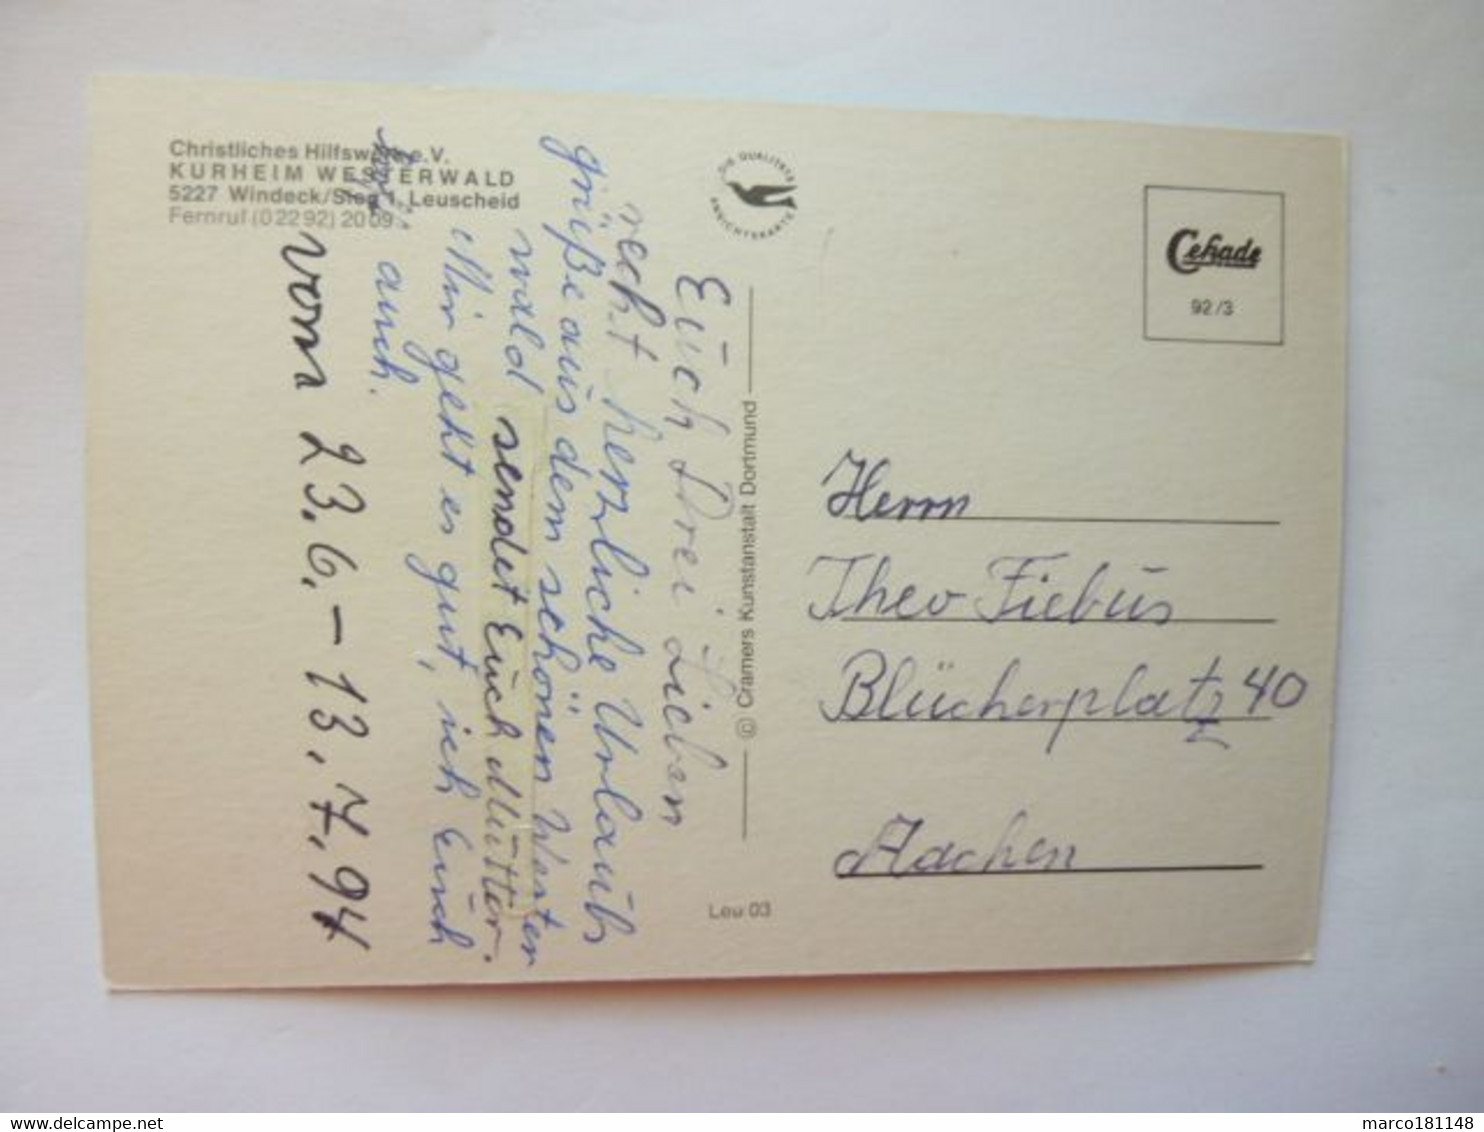 Christliches Hilfswerk e.V.
KURHEIM WESTERWALD
5227 Windeck/Sieg 1, Leuscheid
Fernruf (0 22 92) 20 09
DIE QUALITÄTS
ANSICHTSKARTE
Cekade
92/3
Euch Drei Lieben
recht herzliche Urlaubs
grüße aus dem schönen Wester
wald sendet Euch Mutter.
Mir geht es gut, ich Euch
auch.
vom 23.6.-13.7.94
© Cramers Kunstanstalt Dortmund
Leu 03
Herrn
Theo Fiebus
Blücherplatz 40
Aachen
delcampe.net
marco181148